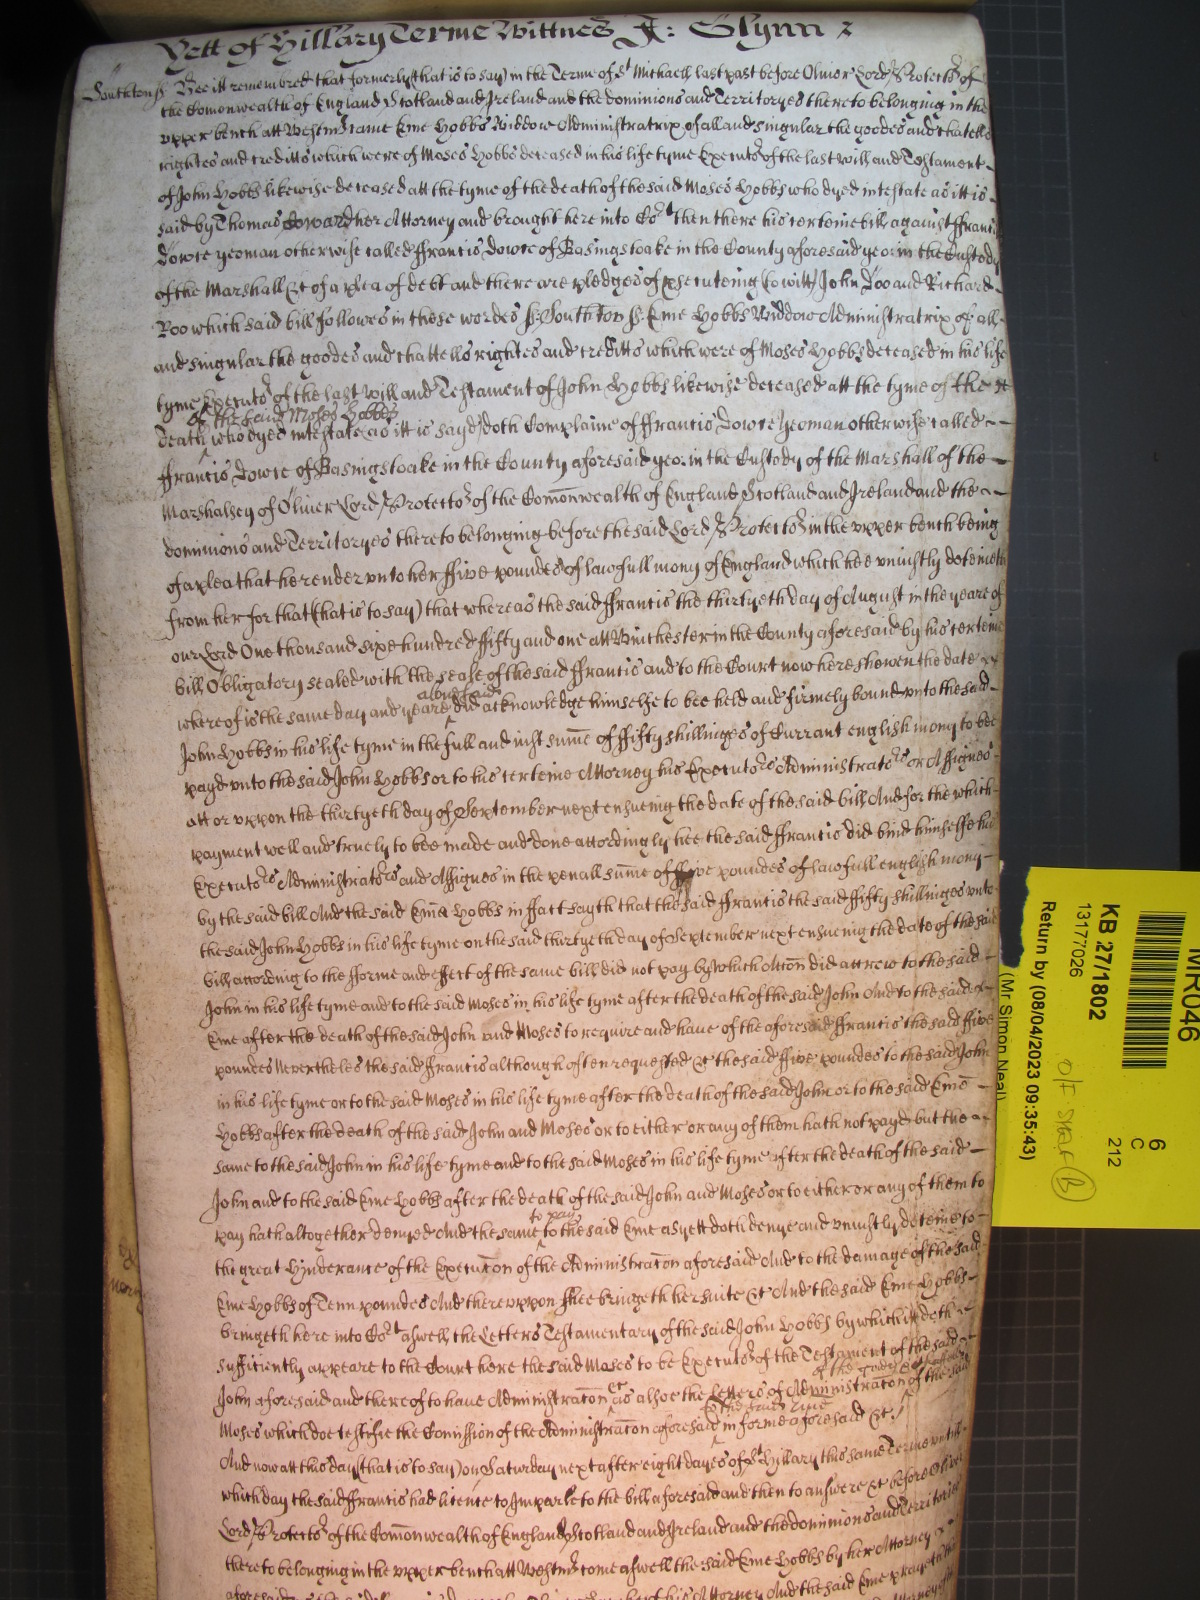 Yett of Hillary Terme Wittnes J: Glynn
Southton ss Bee itt remembred that formerly (that is to say) in the Terme of St Michaell last past before Oliver Lord Protector of
the Comonwealth of England Scotland and Ireland and the dominions and Territoryes thereto belonging in the
upper bench att Westmr came Eme Hobbs Widdow Administratrix of all and singular the goodes and chattells
rightes and creditts which were of Moses Hobbs deceased in his life tyme Executor of the last will and Testament
of John Hobbs likewise deceased att the tyme of the death of the said Moses Hobbs who dyed intestate as itt is
said by Thomas Coward her Attorney and brought here into Cort then there his certeine bill against ffrancis
Dowce yeoman otherwise called ffrancis Dowce of Basingstoake in the County aforesaid yeo: in the Custody
of the Marshall &c of a plea of debt and there are pledges of prsecuteing (to witt) John Doo and Richard
Roo which said bill followes in these wordes ss Southton ss Eme Hobbs Widdow Administratrix of all
and singular the goodes and chattells rightes and creditts which were of Moses Hobbs deceased in his life
tyme Executor of the last will and Testament of John Hobbs likewise deceased att the tyme of the
of the said Moses Hobbs
death who dyes intestate (as itt is sayd) doth Complaine of ffrancis Dowce yeoman otherwise called
ffrancis Dowce of Basingstoake in the County aforesaid yeo: in the Custody of the Marshall of the
Marshalsey of Oliver Lord Protector of the Comonwealth of England Scotland and Ireland and the
dominions and Territoryes thereto belonging before the said Lord Protector in the upper bench being
of a plea that he render unto her ffive poundes of lawfull mony of England which hee uniustly deteineth
from her for that (that is to say) that whereas the said ffrancis the thirtyeth day of August in the yeare of
our Lord One thousand sixe hundred ffifty and one att Winchester in the County aforesaid by his certeine
bill Obligatory sealed with the seale of the said ffrancis and to the Court now here shewen the date
abovesaid
whereof is the same day and yeare did acknowledge himselfe to bee held and firmely bound unto the said
John Hobbs in his life tyme in the full and iust sume of ffifty shillinges of Currant english mony to bee
payd unto the said John Hobbs or to his certeine Attorney his Executors Administrators or Assignes
att or uppon the thirtyeth day of September next ensueing the date of the said bill And for the which
payment well and truely to bee made and done accordingly hee the said ffrancis did bind himselfe his
Executors Administrators and Assignes in the penall sume of ffive poundes of lawfull english mony
by the said bill And the said Eme Hobbs in fact sayth that the said ffrancis the said ffifty shillinges unto
the said John Hobbs in his life tyme on the said thirtyeth day of September next ensueing the date of the said
bill according to the fforme and effect of the same bill did not pay by which Action did accrew to the said
John in his life tyme and to the said Moses in his life tyme after the death of the said John And to the said
Eme after the death of the said John and Moses to require and have of the aforesaid ffrancis the said ffive
poundes Neverthelesse the said ffrancis although often requested &c the said ffive poundes to the said John
in his life tyme or to the said Moses in his life tyme after the death of the said John or to the said Eme
Hobbs after the death of the said John and Moses or to either or any of them hath not payd but the
same to the said John in his life tyme and to the said Moses in his life tyme after the death of the said
John and to the said Eme Hobbs after the death of the said John and Moses or to either or any of them to
to pay
pay hath altogether denyed And the same to the said Eme as yett doth denye and uniustly deteine to
the great Hynderance of the Execution of the Administration aforesaid And to the damage of the said
Eme Hobbs of Tenn poundes And thereuppon shee bringeth her suite &c And the said Eme Hobbs
bringeth here into Cort aswell the Letters Testamentary of the said John Hobbs by which itt doth
sufficiently appeare to the Court here the said Moses to be Executor of the Testament of the said
of the goodes &
John aforesaid and thereof to have Administration &c as alsoe the Letters of Administration of the said
to the said Eme
Moses which doe testifie the Comission of the Administration aforesaid in forme aforesaid &c
And now att this day (that is to say) on Saturday next after eight dayes of St Hillary this same Terme untill
which day the said ffrancis had licence to Imparle to the bill aforesaid and then to answere &c before Oliver
Lord Protector of the Comonwealth of England Scotland and Ireland and the dominions and Territories
thereto belonging in the upper bench att Westmr come aswell the said Eme Hobbs by her Attorney
aforesaid as the said his Attorney And the said Eme prayeth
MR046
6
C
212
KB 27/1802
13177026
O/F Start (B)
Return by (08/04/2023 09:35:43)
(Mr Simon Neal)